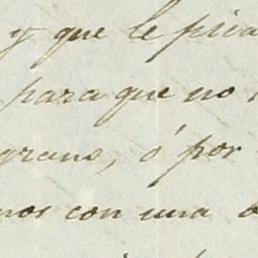 y que le pica
para que no
grano, ó por
nos con una